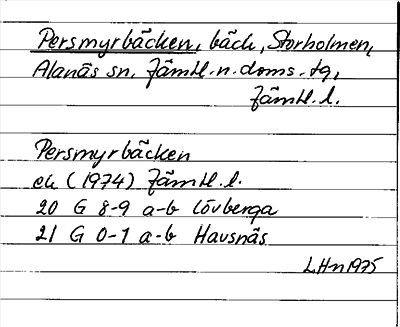 Persmyrbäcken, bäck, Storholmen,
Alanäs sn. Jämtl. n. doms. tg,
Jämtl. l.
Persmyrbäcken
ek (1974) Jämtl. l.
20 G 8-9 a-b Lövberga
21 G 0-1 a-b Havsnäs
LHn 1975